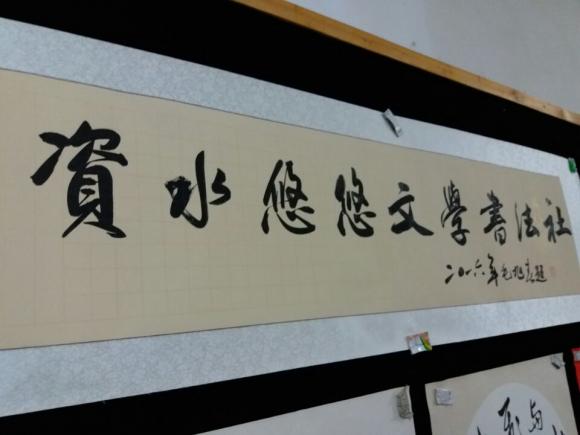 資水悠悠文學書法社
二〇一六年
与